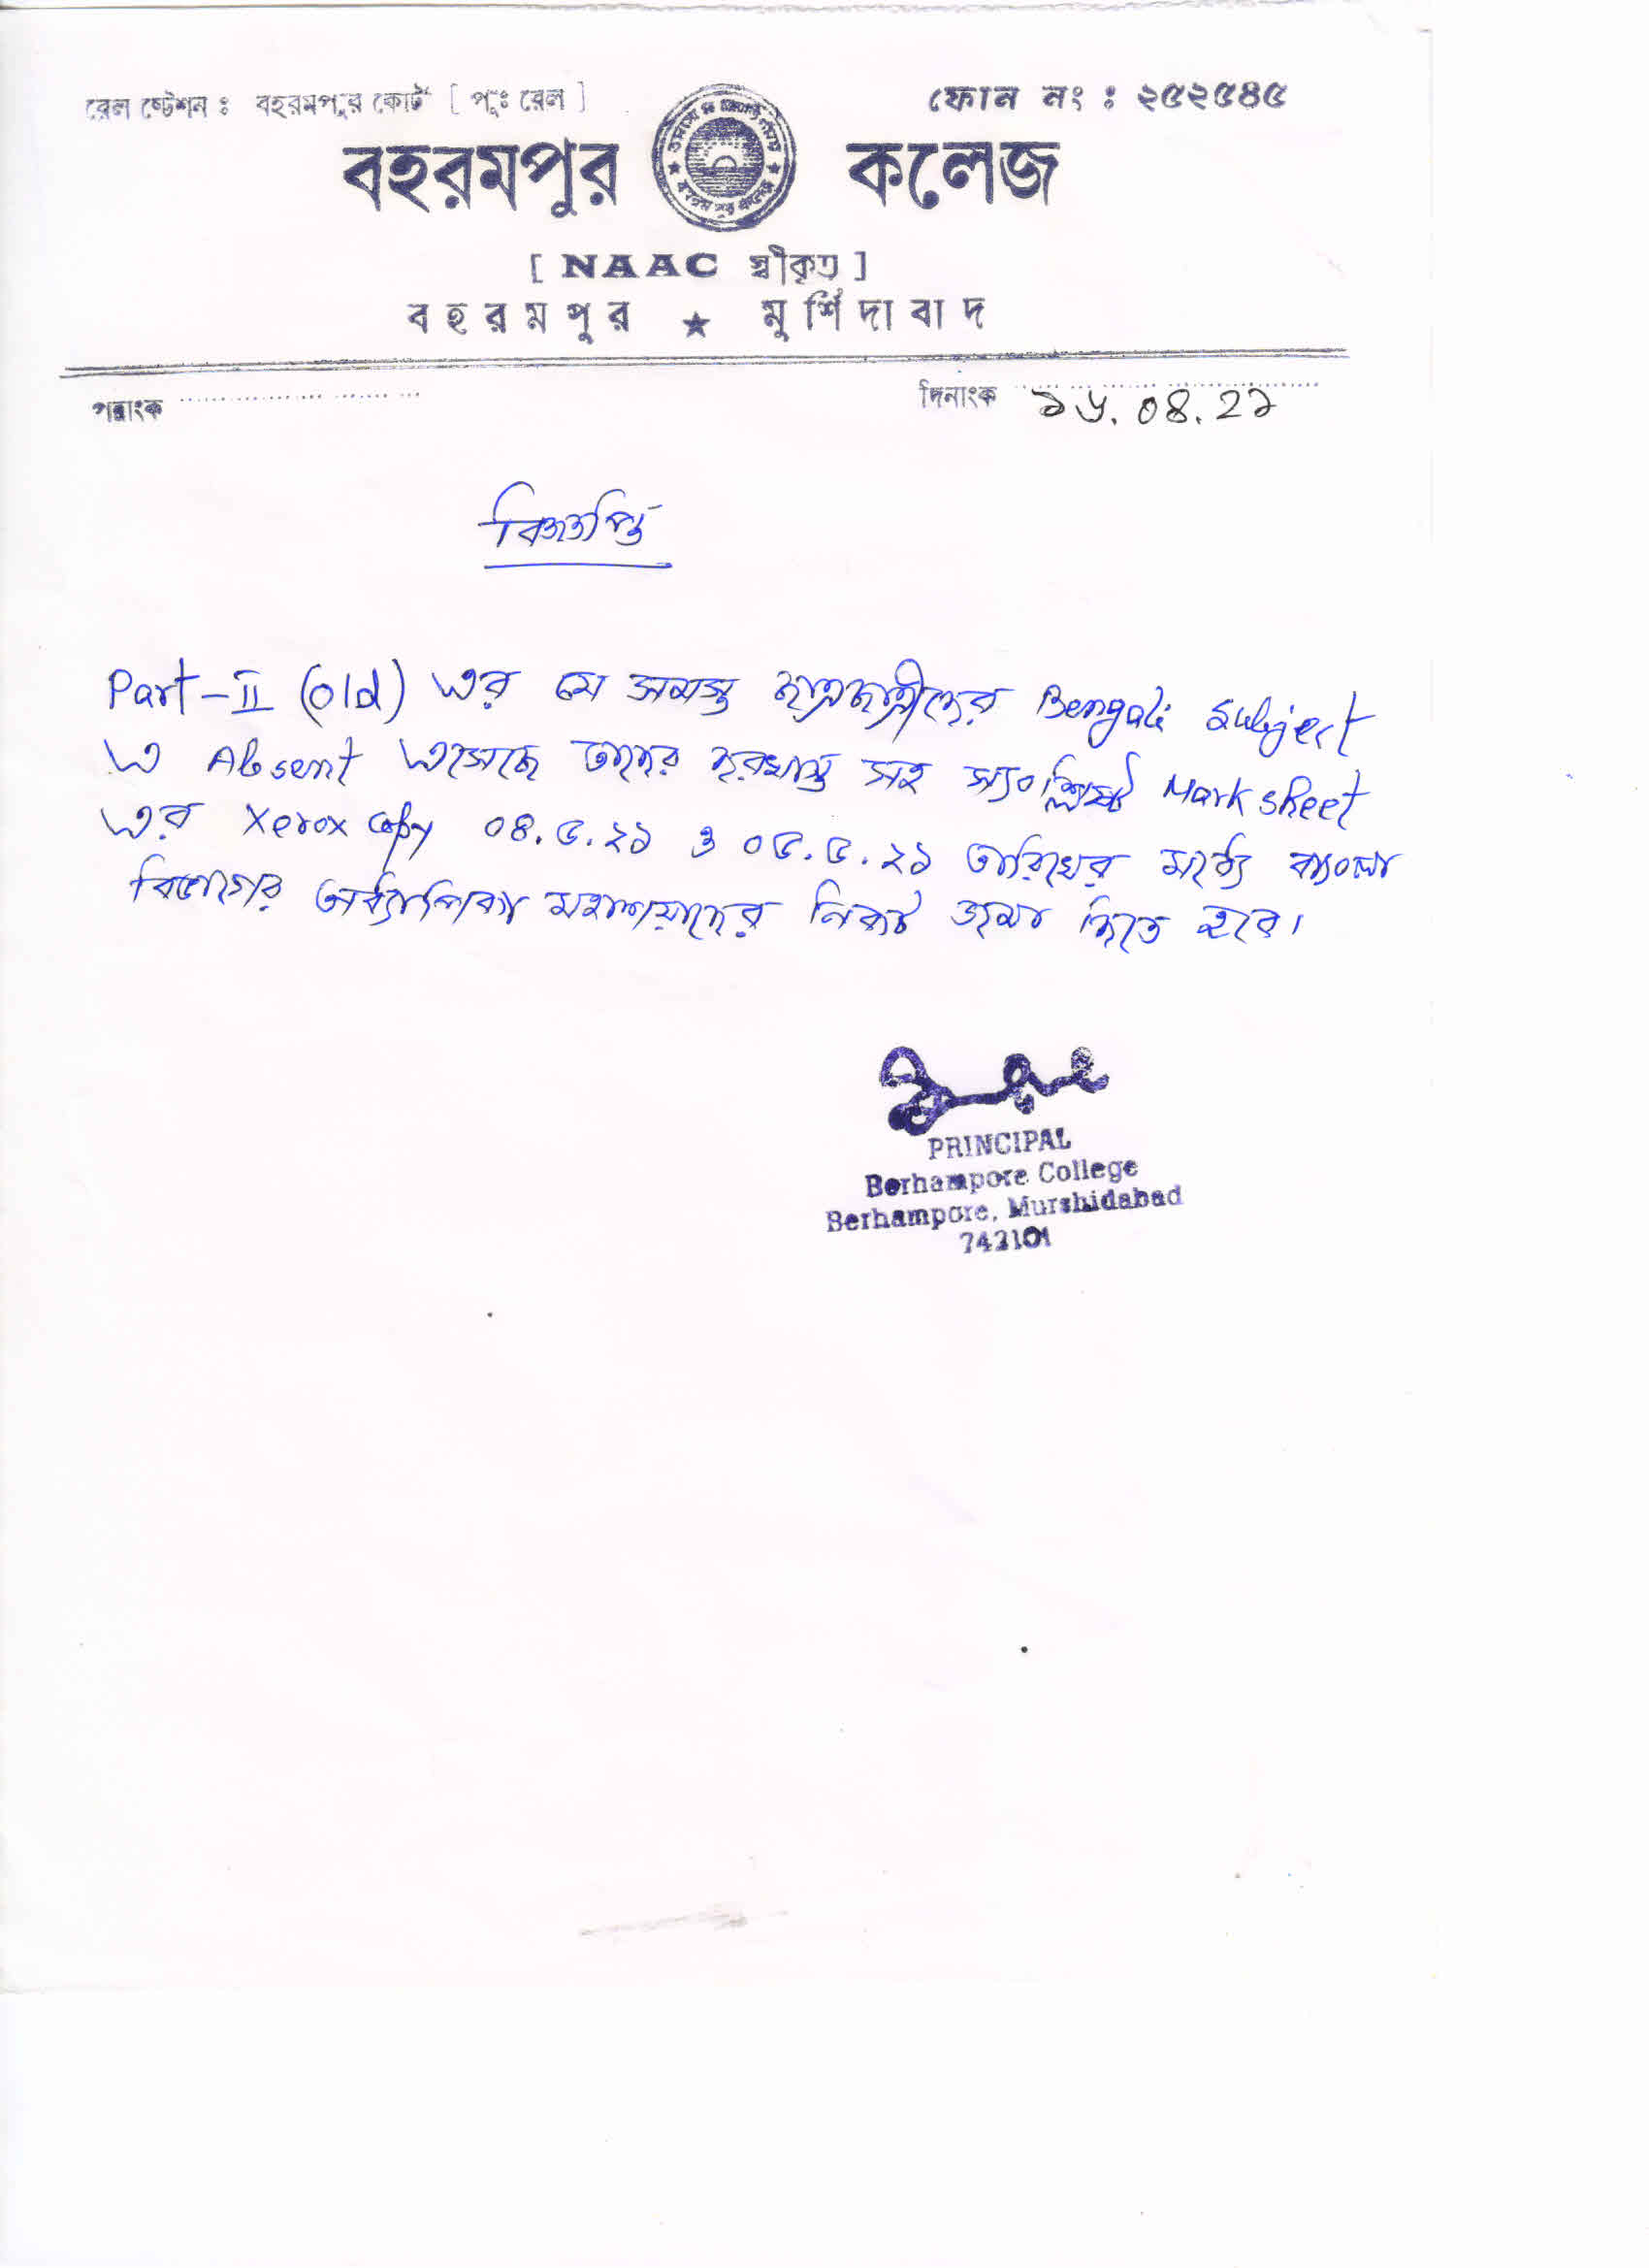 রেল ষ্টেশন : বহরমপুর কোর্ট [ পূঃ রেল ]
ফোন নং : ২৫২৫৪৫
বহরমপুর কলেজ
[ NAAC স্বীকৃত ]
বহরমপুর ★ মুর্শিদাবাদ
পত্রাংক
দিনাংক ১৬.০৪.২১
বিজ্ঞপ্তি
Part-II (old) এর যে সমস্ত ছাত্রছাত্রীদের Bengali subject
এ Absent এসেছে তাদের দরখাস্ত সহ সংশ্লিষ্ট Mark sheet
এর Xerox copy ০৪.৫.২১ ও ০৫.৫.২১ তারিখের মধ্যে বাংলা
বিভাগের অধ্যাপক মহাশয়দের নিকট জমা দিতে হবে।
PRINCIPAL
Berhampore College
Berhampore, Murshidabad
742101